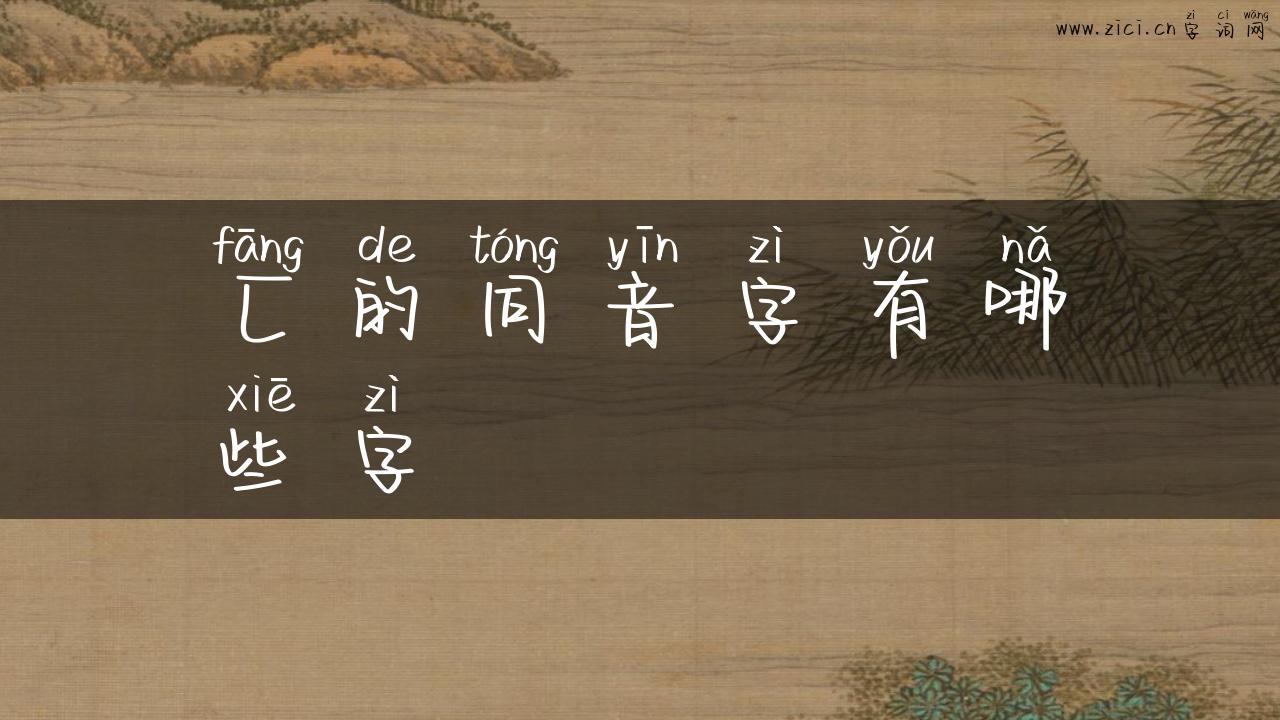 www.zici.cn 字词网
zì cí wǎng
fāng de tóng yīn zì yǒu nǎ
匚的同音字有哪
xiē zì
些字